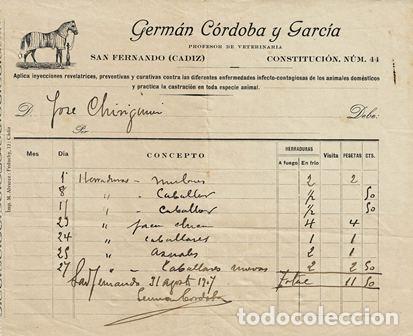 Germán Córdoba y García
PROFESOR DE VETERINARIA
SAN FERNANDO (CADIZ) CONSTITUCIÓN, NÚM. 44
Aplica inyecciones revelatrices, preventivas y curativas contra las diferentes enfermedades infecto-contagiosas de los animales domésticos
y practica la castración en toda especie animal.
D. Jose Debe:
Por
Mes Día CONCEPTO HERRADURAS A fuego En frío Visita PESETAS CTS.
1 Herraduras 2 2
8 " Caballar ½ 50
" Caballar ½ 50
23 " 4 4
24 " Caballares 1 1
25 " Asnales 1 1
27 " Caballares nuevas 2 2 50
San Fernando 31 agosto Total 11 50
German Cordoba
Imp. M. Alvarez
todocoleccion.net